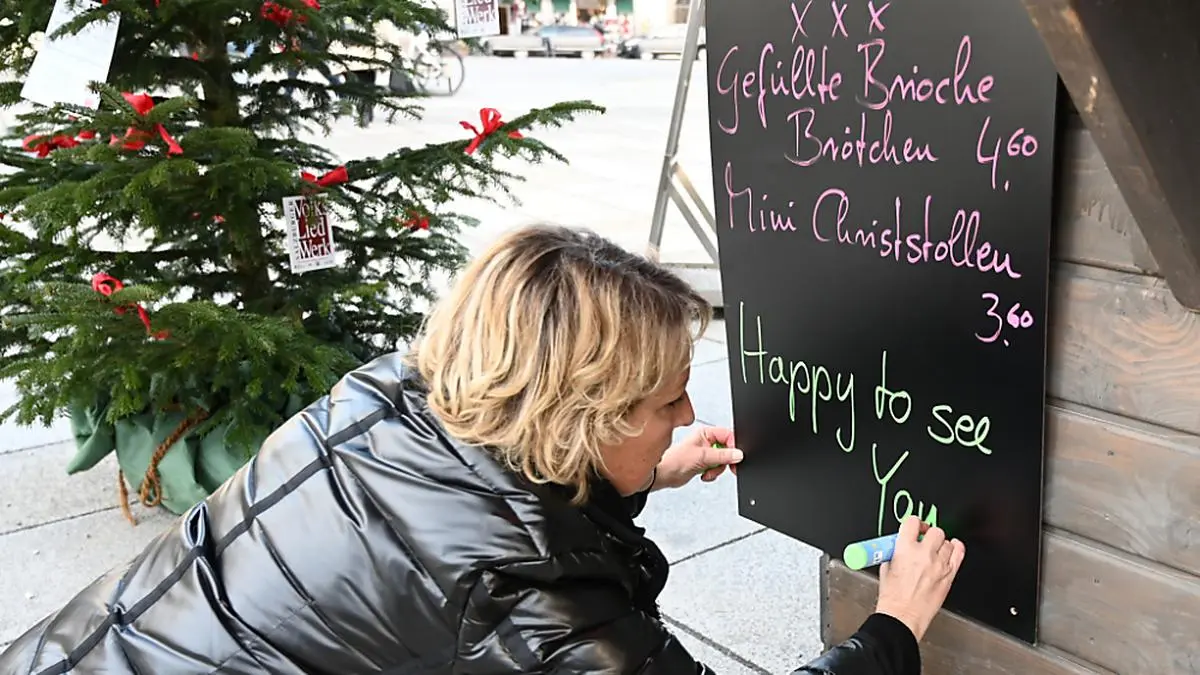 Lied
Werk
x x x
Gefüllte Brioche
Brötchen 4.60
Mini Christstollen
3.60
Happy to see
You
Volks
Lied
Werk